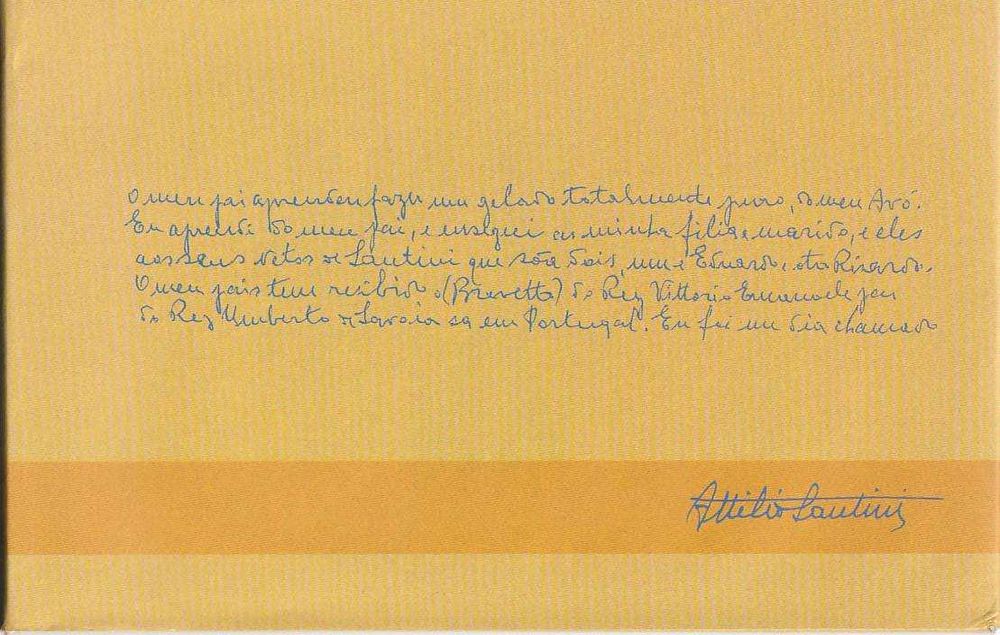 O meu pai aprendeu fazer um gelado totalmente puro, do meu Avó.
Eu aprendi do meu pai, e ensiguei as minha filia e marido, e eles
aos seus netos de Santini que são dois, um e' Eduardo, otro Ricardo.
O meu pais tem recibido o (Bravetto) do Rey Vittorio Emanuele pai
do Rey Umberto de Savoia ca em Portugal. Eu fui um dia chamado
Attilio Santini